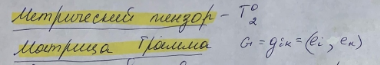 Метрический тензор - T⁰₂
Матрица Грамма G = gᵢₖ = (eᵢ, eₖ)